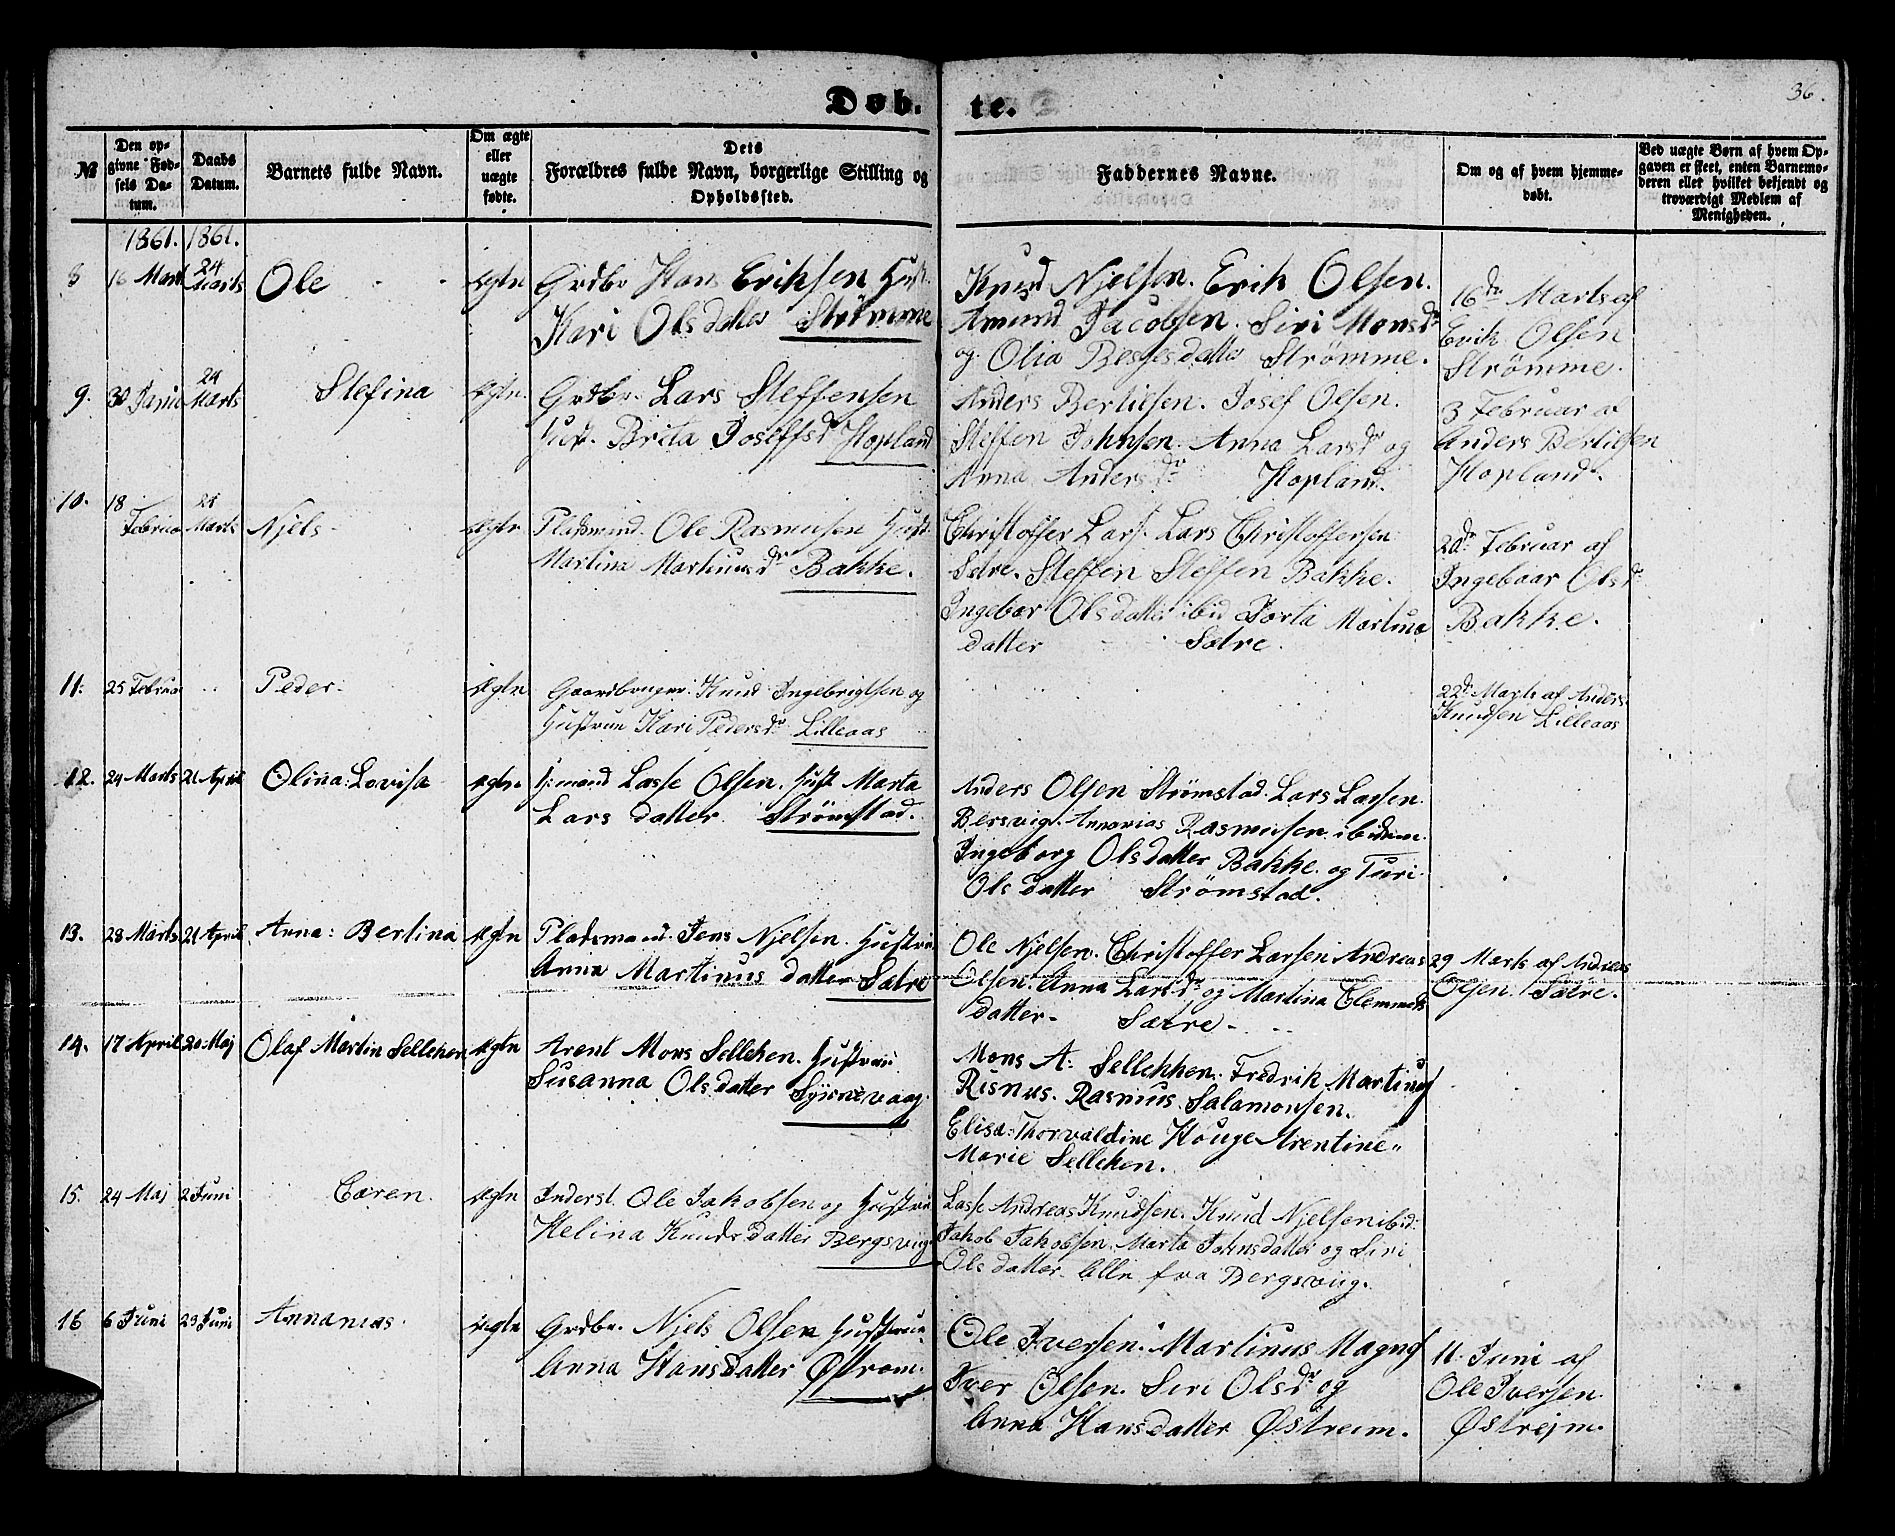 Døb. te.
36.
№
Den opgivne Fødsels Datum.
Daabs Datum.
Barnets fulde Navn.
Om ægte eller uægte fødte.
Dets Forældres fulde Navn, borgerlige Stilling og Opholdssted.
Faddernes Navne.
Om og af hvem hjemmedøbt.
Ved uægte Børn af hvem Opgaven er skeet, enten Barnemoderen eller hvilket bekjendt og troværdigt Medlem af Menigheden.
1861. 1861.
8 16 Mart 24 Marts Ole Ægte
Grdbr Hans Eriksen Hust.
Kari Olsdatter Strömme
Knud Njelsen. Erik Olsen.
Amund Jacobsen. Siri Monsdr
og Olia Bessesdatter Strömme.
16de Marts af
Erik Olsen
Strömme.
9. 30 Janu 24 Marts Stefina Ægte
Grdbr. Lars Steffensen
Hust. Brita Joseffsdr Hopland
Anders Bertilsen. Josef Olsen.
Steffen Johnsen. Anna Larsdr og
Anna Andersdr Hopland.
3 Februar af
Anders Bertilsen
Hopland.
10. 18 Februa 25 Marts Njels Ægte
Pladsmand. Ole Rasmusen Hust.
Martina Martinusdr Bakke.
Christoffer Lars. Lars Christoffersen
Setre. Steffen Steffen Bakke.
Ingebor Olsdatter ibid Jorta Martinus
datter Sætre.
20de Februar af
Ingeboar Olsdr
Bakke.
11. 25 Februa Peder. Ægte
Gaardbruger. Knud Ingebrigtsen og
Hustrue Kari Pedersdr Lilleaas
22de Marts af Anders
Knudsen Lilleaas
12. 24 Marts 21 April Olina Lovisa Ægte
H:mand Lasse Olsen. Hust Marta
Larsdatter Strömstad.
Anders Olsen Strömstad. Lars Larsen
Bersvig. Annanias Rasmusen ibidem.
Ingeborg Olsdatter Bakke og Turi
Olsdatter Strömstad.
13. 28 Marts 21 April Anna: Bertina Ægte
Pladsmand. Jens Njelsen. Hustru
Anna Martinusdatter Sætre
Ole Njelsen. Christoffer Larsen Andreas
Olsen. Anna Larsdr og Martina Clemmets
datter Sætre
29 Marts af Andreas
Olsen Sætre.
14. 17 April 20 Maj Olaf Martin Sellehen Ægte
Arent Mons Sellehen. Hustrue
Susanna Olsdatter Syrnevaag.
Mons A: Sellehhen. Fredrik Martinus
Risnes. Rasmus Salamonsen.
Elisa: Thorvaldine Houge Arentine
Marie Sellehen.
15. 24 Maj 2 Juni Caren. Ægte
Inderst Ole Jakobsen og Hustru
Helina Knudsdatter Bergsviig
Lasse Andreas Knudsen. Knud Njelsen ibid:
Jakob Jakobsen. Marta Johnsdatter og Siri
Olsdatter Alle fra Bergsviig.
16 6 Juni 23 Juni Annanias Ægte
Grdbr. Njels Olsen Hustrue
Anna Hansdatter Østrem.
Ole Iversen. Martinus Magnus
Iver Olsen. Siri Olsdr og
Anna Hansdatter Østreim.
11. Juni af
Ole Iversen
Østrejm.